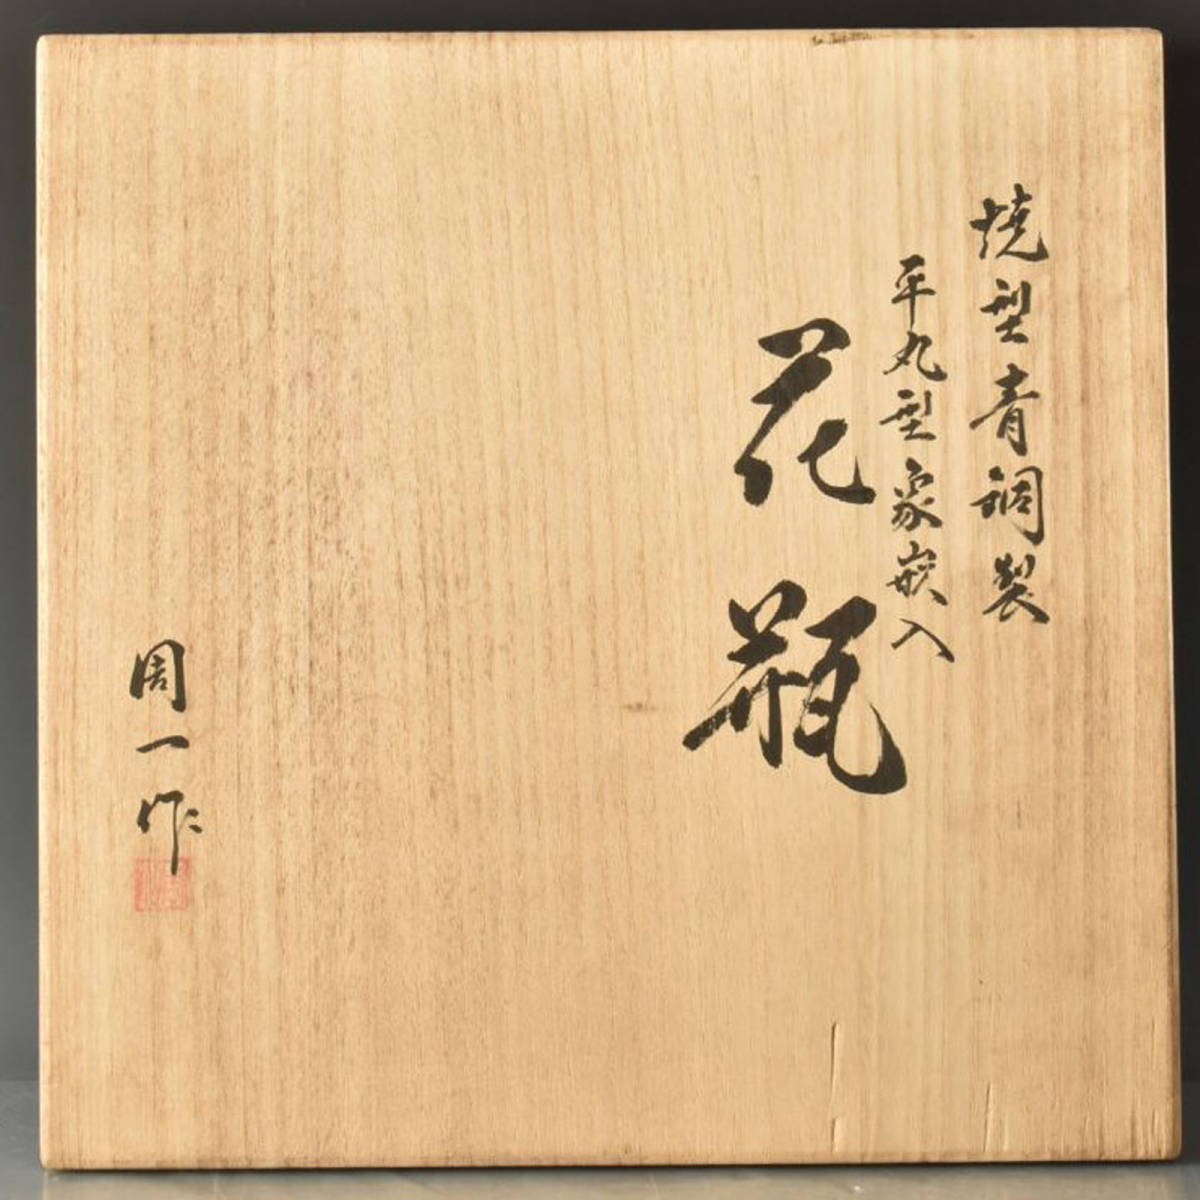 焼型青銅製
平丸型象嵌入
花瓶
周一作